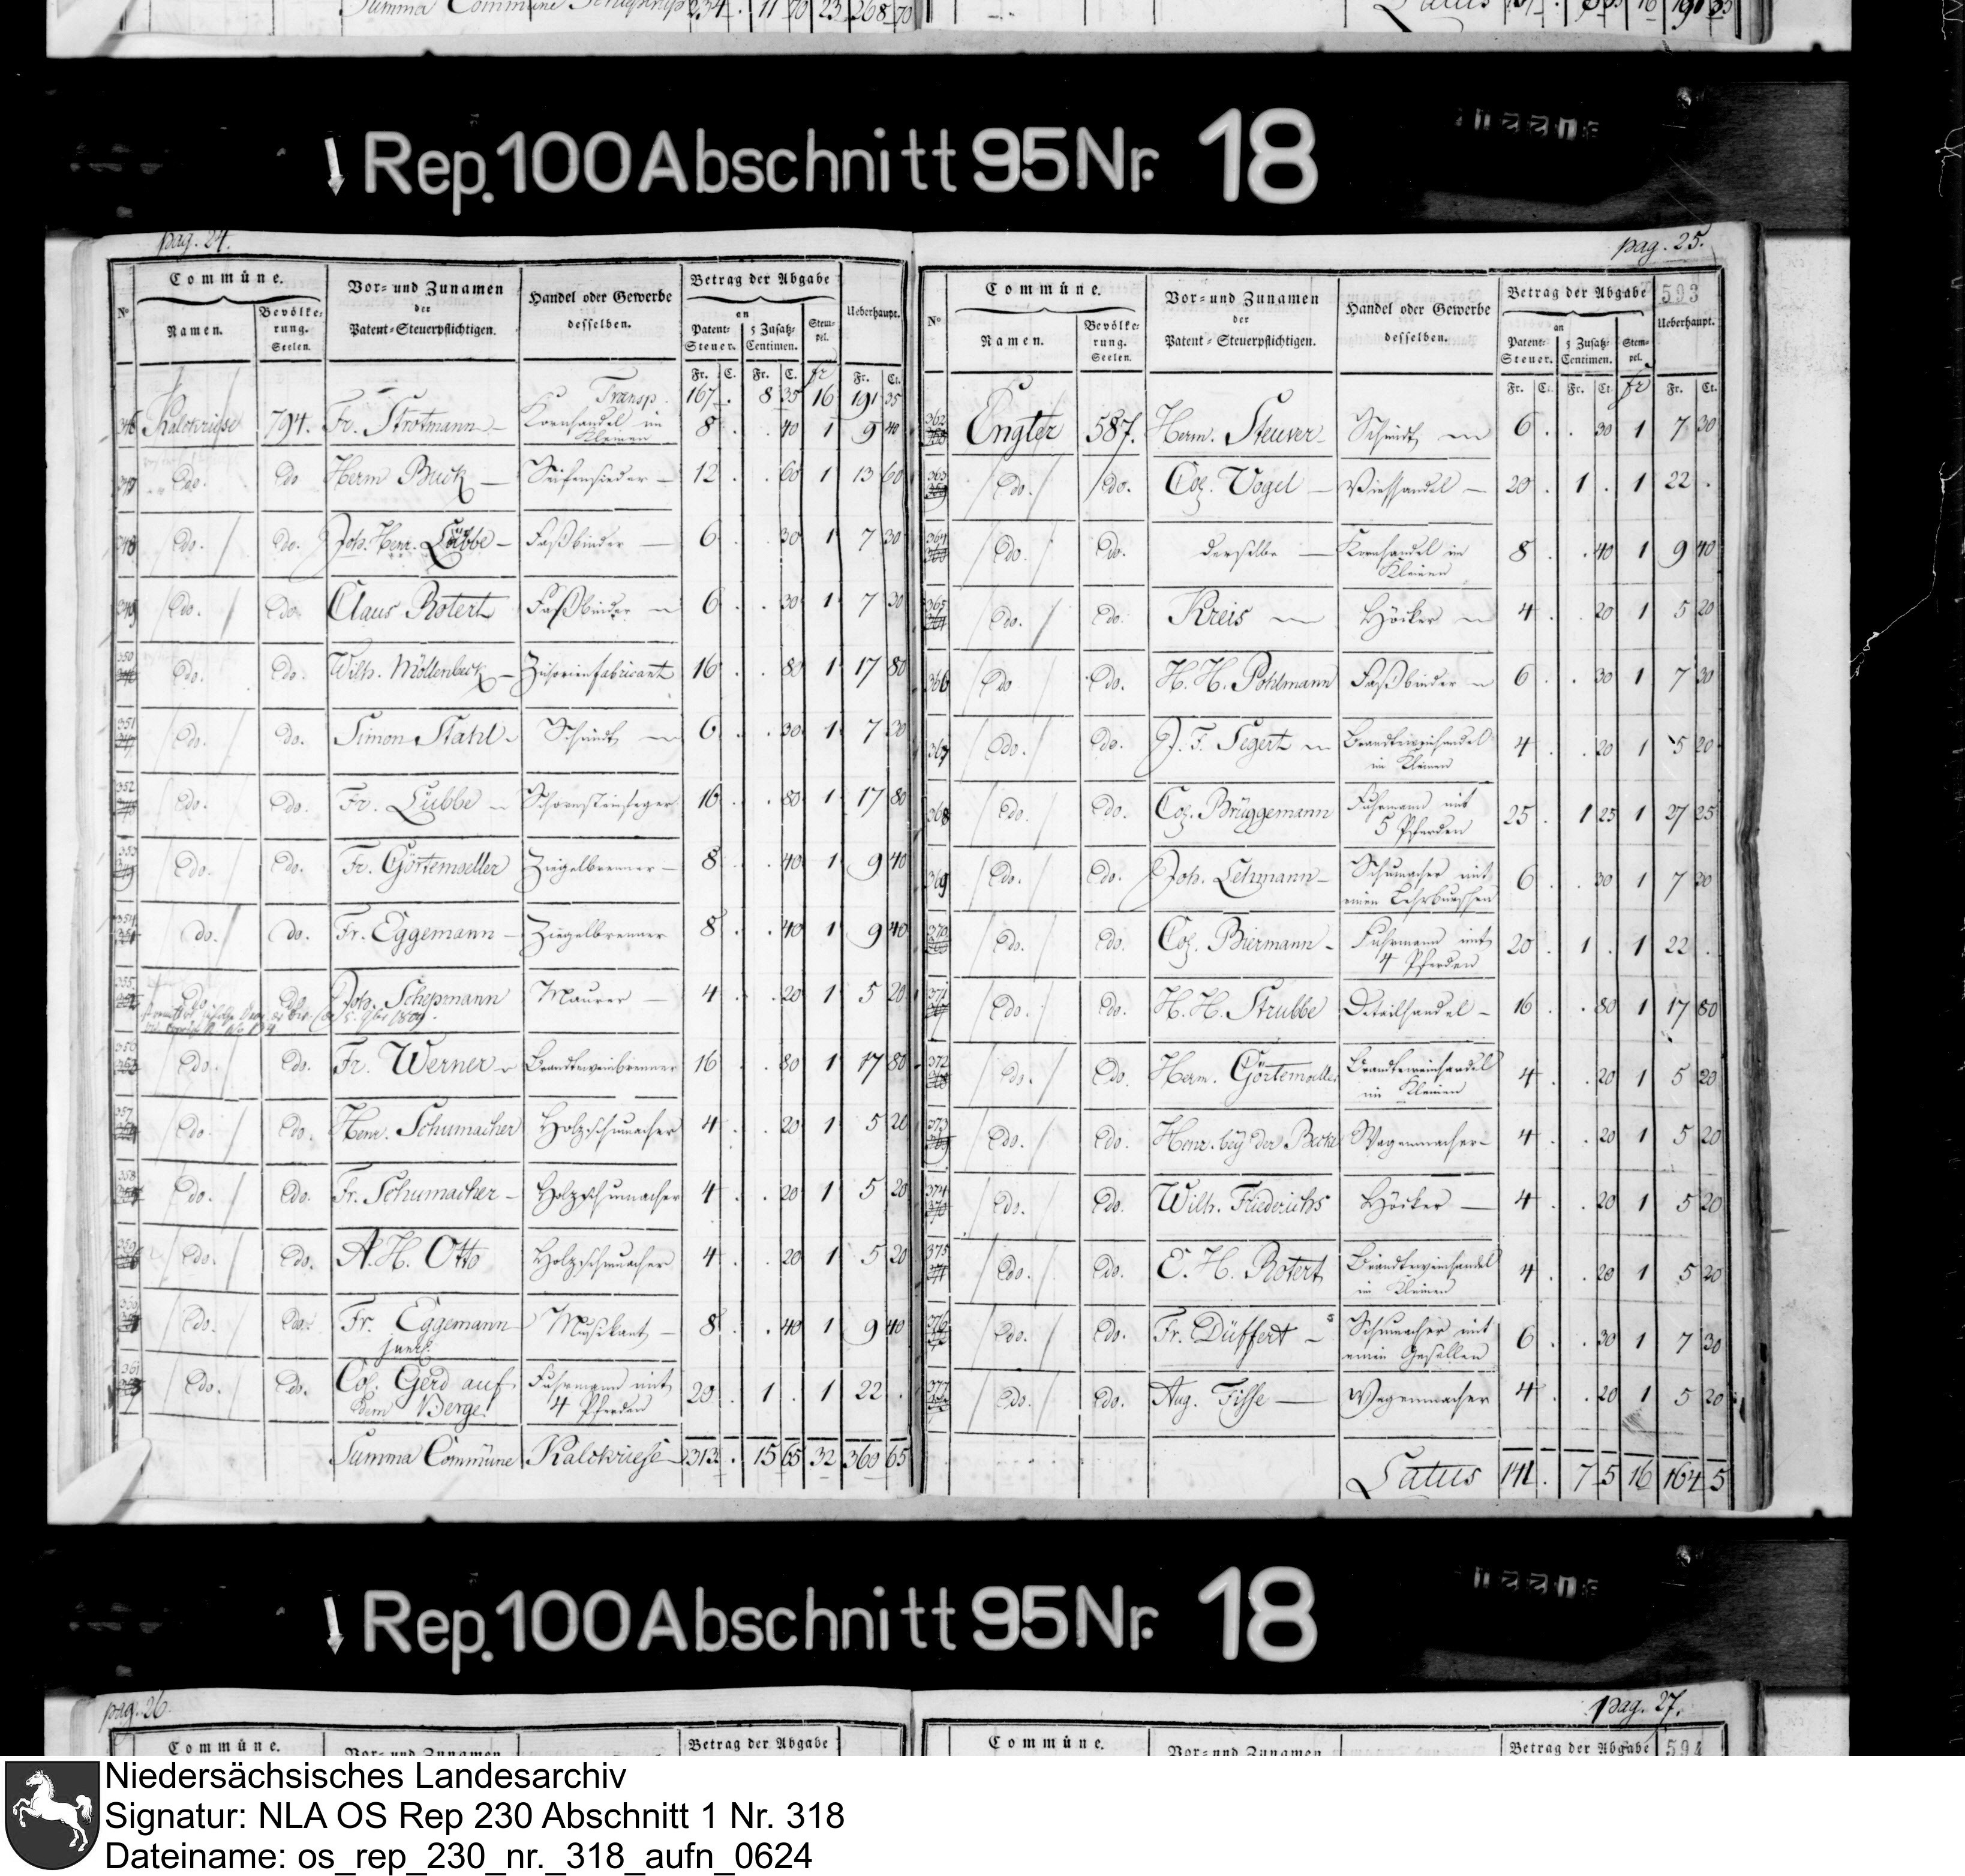 Summa Commune 234 . 11 70 23 268 70
Latus
↓ Rep. 100 Abschnitt 95 Nr. 18
pag. 24.
Commúne.
Vor- und Zunamen
der
Patent-Steuerpflichtigen.
Handel oder Gewerbe
desselben.
Betrag der Abgabe
an
Ueberhaupt.
No
Namen.
Bevölke-
rung.
Seelen.
Patent-
Steuer.
5 Zusatz-
Centimen.
Stem-
pel.
Fr. C. Fr. C. fr Fr. Ct.
Transp. 167 . 8 35 16 191 35
346 Kalckriese 794. Fr. Strotmann Kornhandel im Kleinen 8 . . 40 1 9 40
347 do. do Herm Buck Seifensieder 12 . . 60 1 13 60
348 do. do. Joh. Henr. Lübbe Faßbinder 6 . . 30 1 7 30
349 do. do. Claus Rotert Faßbinder 6 . . 30 1 7 30
350 do. do. Wilh. Möllenbeck Zichorienfabricant 16 . . 80 1 17 80
351 do. do. Simon Stahl Schmidt 6 . . 30 1 7 30
352 do. do. Fr. Lübbe Schornsteinfeger 16 . . 80 1 17 80
353 do. do. Fr. Görtemoeller Ziegelbrenner 8 . . 40 1 9 40
354 do. do. Fr. Eggemann Ziegelbrenner 8 . . 40 1 9 40
355 do do. Joh. Schepmann Maurer 4 . . 20 1 5 20
356 do. do. Fr. Werner Brandteweinbrenner 16 . . 80 1 17 80
357 do. do. Henr. Schumacher Holzschumacher 4 . . 20 1 5 20
358 do. do. Fr. Schumacher Holzschumacher 4 . . 20 1 5 20
359 do. do. A. H. Otto Holzschumacher 4 . . 20 1 5 20
360 do. do. Fr. Eggemann Musikant 8 . . 40 1 9 40
361 do. do. Col. Gerd auf dem Berge Fuhrmann mit 4 Pferden 20 . 1 . 1 22 .
Summa Commúne Kalckriese 313 . 15 65 32 360 65
pag. 25.
593
Commúne.
Vor- und Zunamen
der
Patent-Steuerpflichtigen.
Handel oder Gewerbe
desselben.
Betrag der Abgabe
an
Ueberhaupt.
No
Namen.
Bevölke-
rung.
Seelen.
Patent-
Steuer.
5 Zusatz-
Centimen.
Stem-
pel.
Fr. Ct. Fr. Ct. fr Fr. Ct.
362 Engter 587. Herm. Steuwer Schmidt 6 . . 30 1 7 30
363 do. do. Col. Vogel Viehhandel 20 . 1 . 1 22 .
364 do. do. derselbe Kornhandel im Kleinen 8 . . 40 1 9 40
365 do. do. Kreis Höcker 4 . . 20 1 5 20
366 do do. H. H. Pohlmann Faßbinder 6 . . 30 1 7 30
367 do. do. J. F. Segert Brandteweinhandel im Kleinen 4 . . 20 1 5 20
368 do. do. Col. Brüggemann Fuhrmann mit 5 Pferden 25 . 1 25 1 27 25
369 do. do. Joh. Lehmann Schumacher mit einen Lehrburschen 6 . . 30 1 7 30
370 do. do. Col. Biermann Fuhrmann mit 4 Pferden 20 . 1 . 1 22 .
371 do. do. H. H. Strubbe Detailhandel 16 . . 80 1 17 80
372 do. do. Herm. Görtemoeller Brandteweinhandel im Kleinen 4 . . 20 1 5 20
373 do. do. Henr. bey der Becke Wagenmacher 4 . . 20 1 5 20
374 do. do. Wilh. Friederichs Höcker 4 . . 20 1 5 20
375 do. do. E. H. Rotert Brandteweinhandel im Kleinen 4 . . 20 1 5 20
376 do. do. Fr. Düffert Schumacher mit einen Gesellen 6 . . 30 1 7 30
377 do. do. Aug. Fisse Wagenmacher 4 . . 20 1 5 20
Latus 141 . 7 5 16 164 5
↓ Rep. 100 Abschnitt 95 Nr. 18
pag. 26
Commúne.
Vor- und Zunamen
Betrag der Abgabe
pag. 27.
Commúne.
Vor- und Zunamen
Betrag der Abgabe
594
Niedersächsisches Landesarchiv
Signatur: NLA OS Rep 230 Abschnitt 1 Nr. 318
Dateiname: os_rep_230_nr._318_aufn_0624